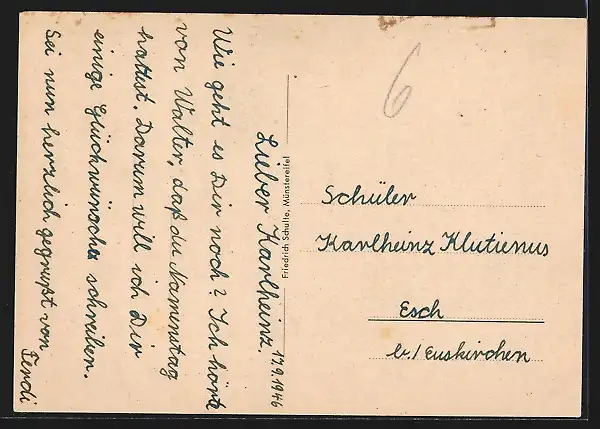 17.9.1946
Lieber Karlheinz.
Wie geht es Dir noch? Ich hörte
von Walter, daß du Namenstag
hattest. Darum will ich Dir
einige Glückwünsche schreiben.
Sei nun herzlich gegrüßt von
Ferdi
Friedrich Schulte, Münstereifel
6
Schüler
Karlheinz Klutienus
Esch
b./Euskirchen